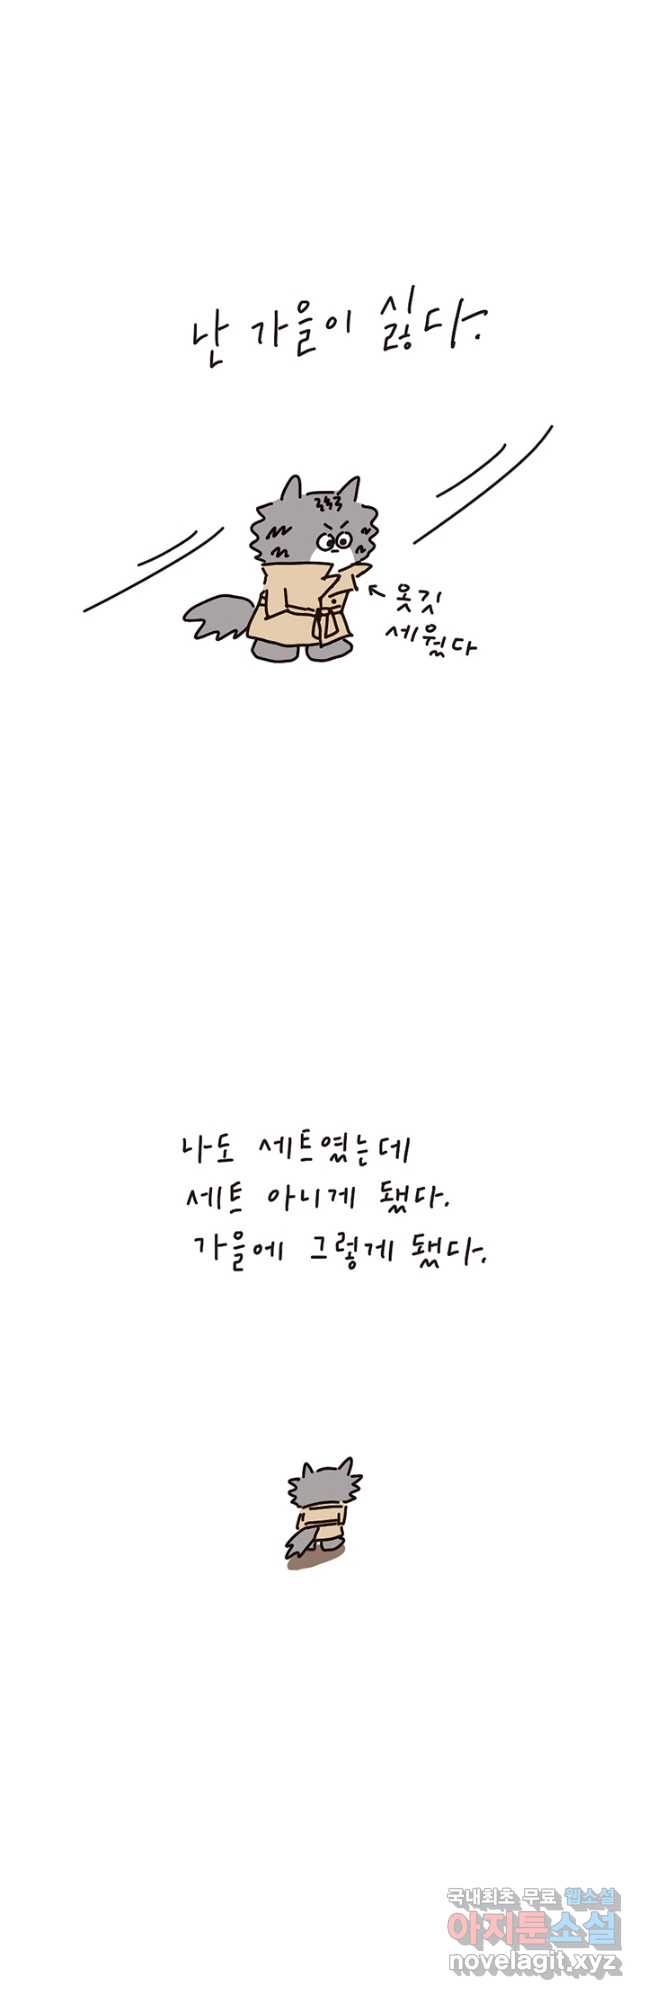 난 가을이 싫다.
← 옷깃
세웠다
나도 세트였는데
세트 아니게 됐다.
가을에 그렇게 됐다.
국내최초 무료 웹소설
아지툰소설
novelagit.xyz